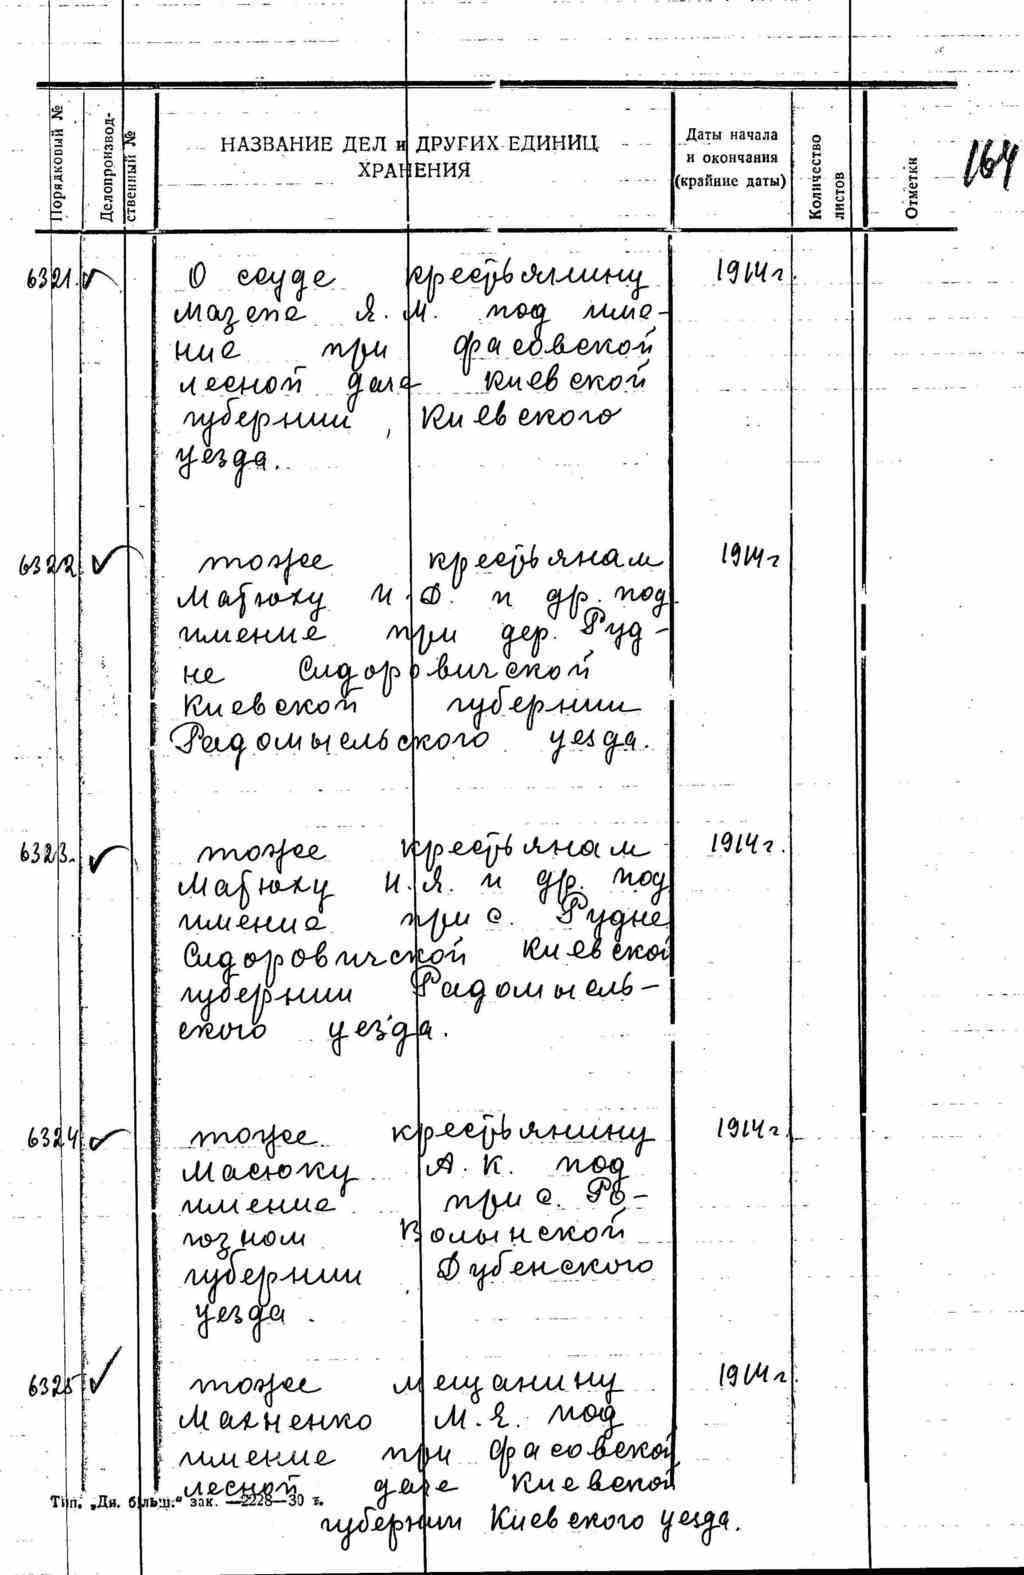 Порядковый №
Делопроизвод-
ственный №
НАЗВАНИЕ ДЕЛ и ДРУГИХ ЕДИНИЦ
ХРАНЕНИЯ
Даты начала
и окончания
(крайние даты)
Количество
листов
Отметки
164
6321. О ссуде крестьянину 1914 г.
Мазепе Я. М. под име-
ние при Фасовской
лесной даче Киевской
губернии, Киевского
уезда.
6322 тоже крестьянам 1914 г
Матюху И. Ф. и др. под
имение при дер. Руд-
не Сидоровичской
Киевской губернии
Радомысльского уезда.
6323. тоже крестьянам 1914 г.
Матюху И. Я. и др. под
имение при с. Рудне
Сидоровичской Киевской
губернии Радомысль-
ского уезда.
6324 тоже крестьянину 1914 г.
Масюку А. К. под
имение при с. Ро-
гозном Волынской
губернии Дубенского
уезда.
6325 тоже мещанину 1914 г.
Махненко М. Е. под
имение при Фасовской
лесной даче Киевской
Тип. „Дн. більш.“ зак. —2228—30 т.
губернии Киевского уезда.